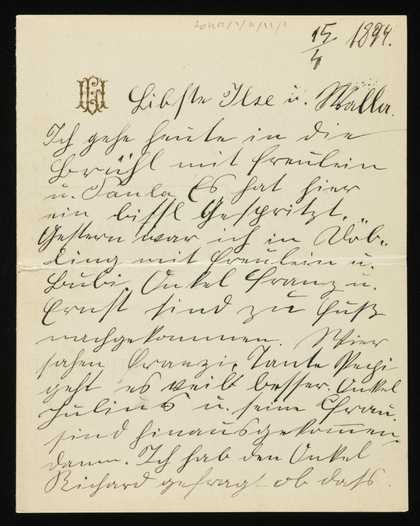 15/4 1894.
Liebste Ilse u. Malla.
Ich gehe heute in die
Brühl mit Freulein
u. Paula Es hat hier
ein bissl Gespritzt.
Gestern war ich in Döb-
ling mit Freulein u.
Bubi. Onkel Franz u.
Ernst sind zu Fuß
nachgekommen. Wier
sahen Franzi, Tante Pepi
geht es besser. Onkel
Julius u. seine Frau.
sind hinausgekommen.
dann. Ich hab den Onkel
Richard gefragt ob dass